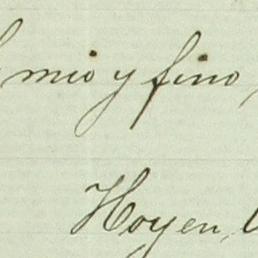 mio y fino
Hoyen,